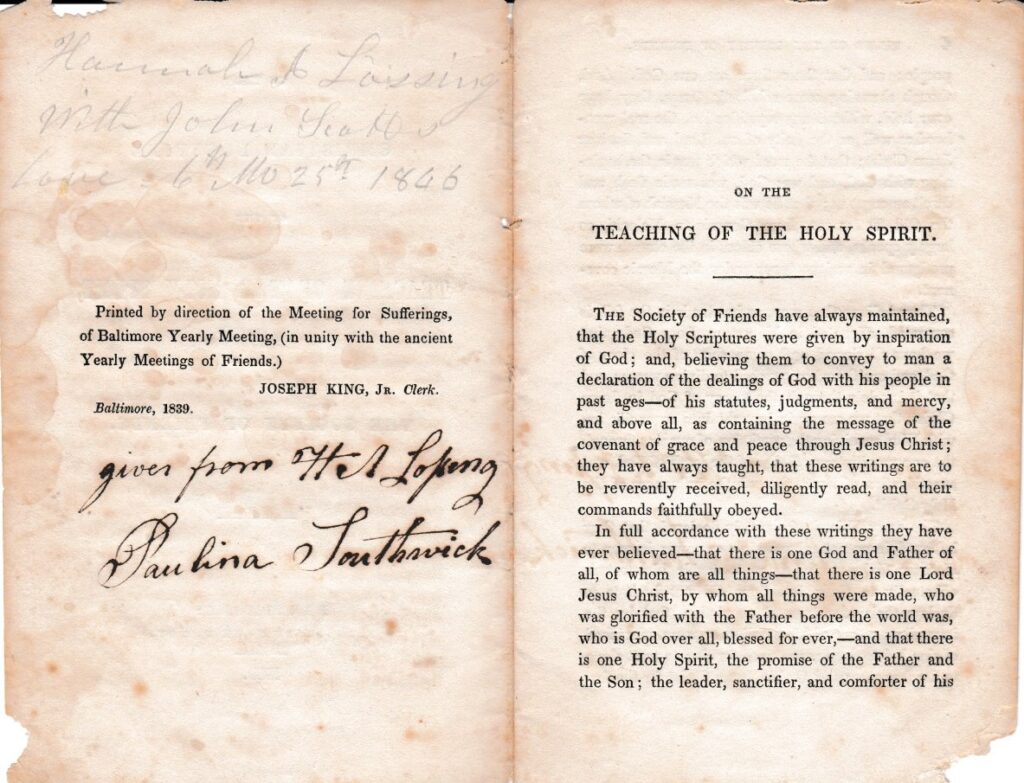 Hannah A Lossing
With John Scotts
love - 6th Mo 25th 1846
Printed by direction of the Meeting for Sufferings,
of Baltimore Yearly Meeting, (in unity with the ancient
Yearly Meetings of Friends.)
JOSEPH KING, JR. Clerk.
Baltimore, 1839.
given from H A Lossing
Paulina Southwick
ON THE
TEACHING OF THE HOLY SPIRIT.
THE Society of Friends have always maintained,
that the Holy Scriptures were given by inspiration
of God; and, believing them to convey to man a
declaration of the dealings of God with his people in
past ages—of his statutes, judgments, and mercy,
and above all, as containing the message of the
covenant of grace and peace through Jesus Christ;
they have always taught, that these writings are to
be reverently received, diligently read, and their
commands faithfully obeyed.
In full accordance with these writings they have
ever believed—that there is one God and Father of
all, of whom are all things—that there is one Lord
Jesus Christ, by whom all things were made, who
was glorified with the Father before the world was,
who is God over all, blessed for ever,—and that there
is one Holy Spirit, the promise of the Father and
the Son; the leader, sanctifier, and comforter of his